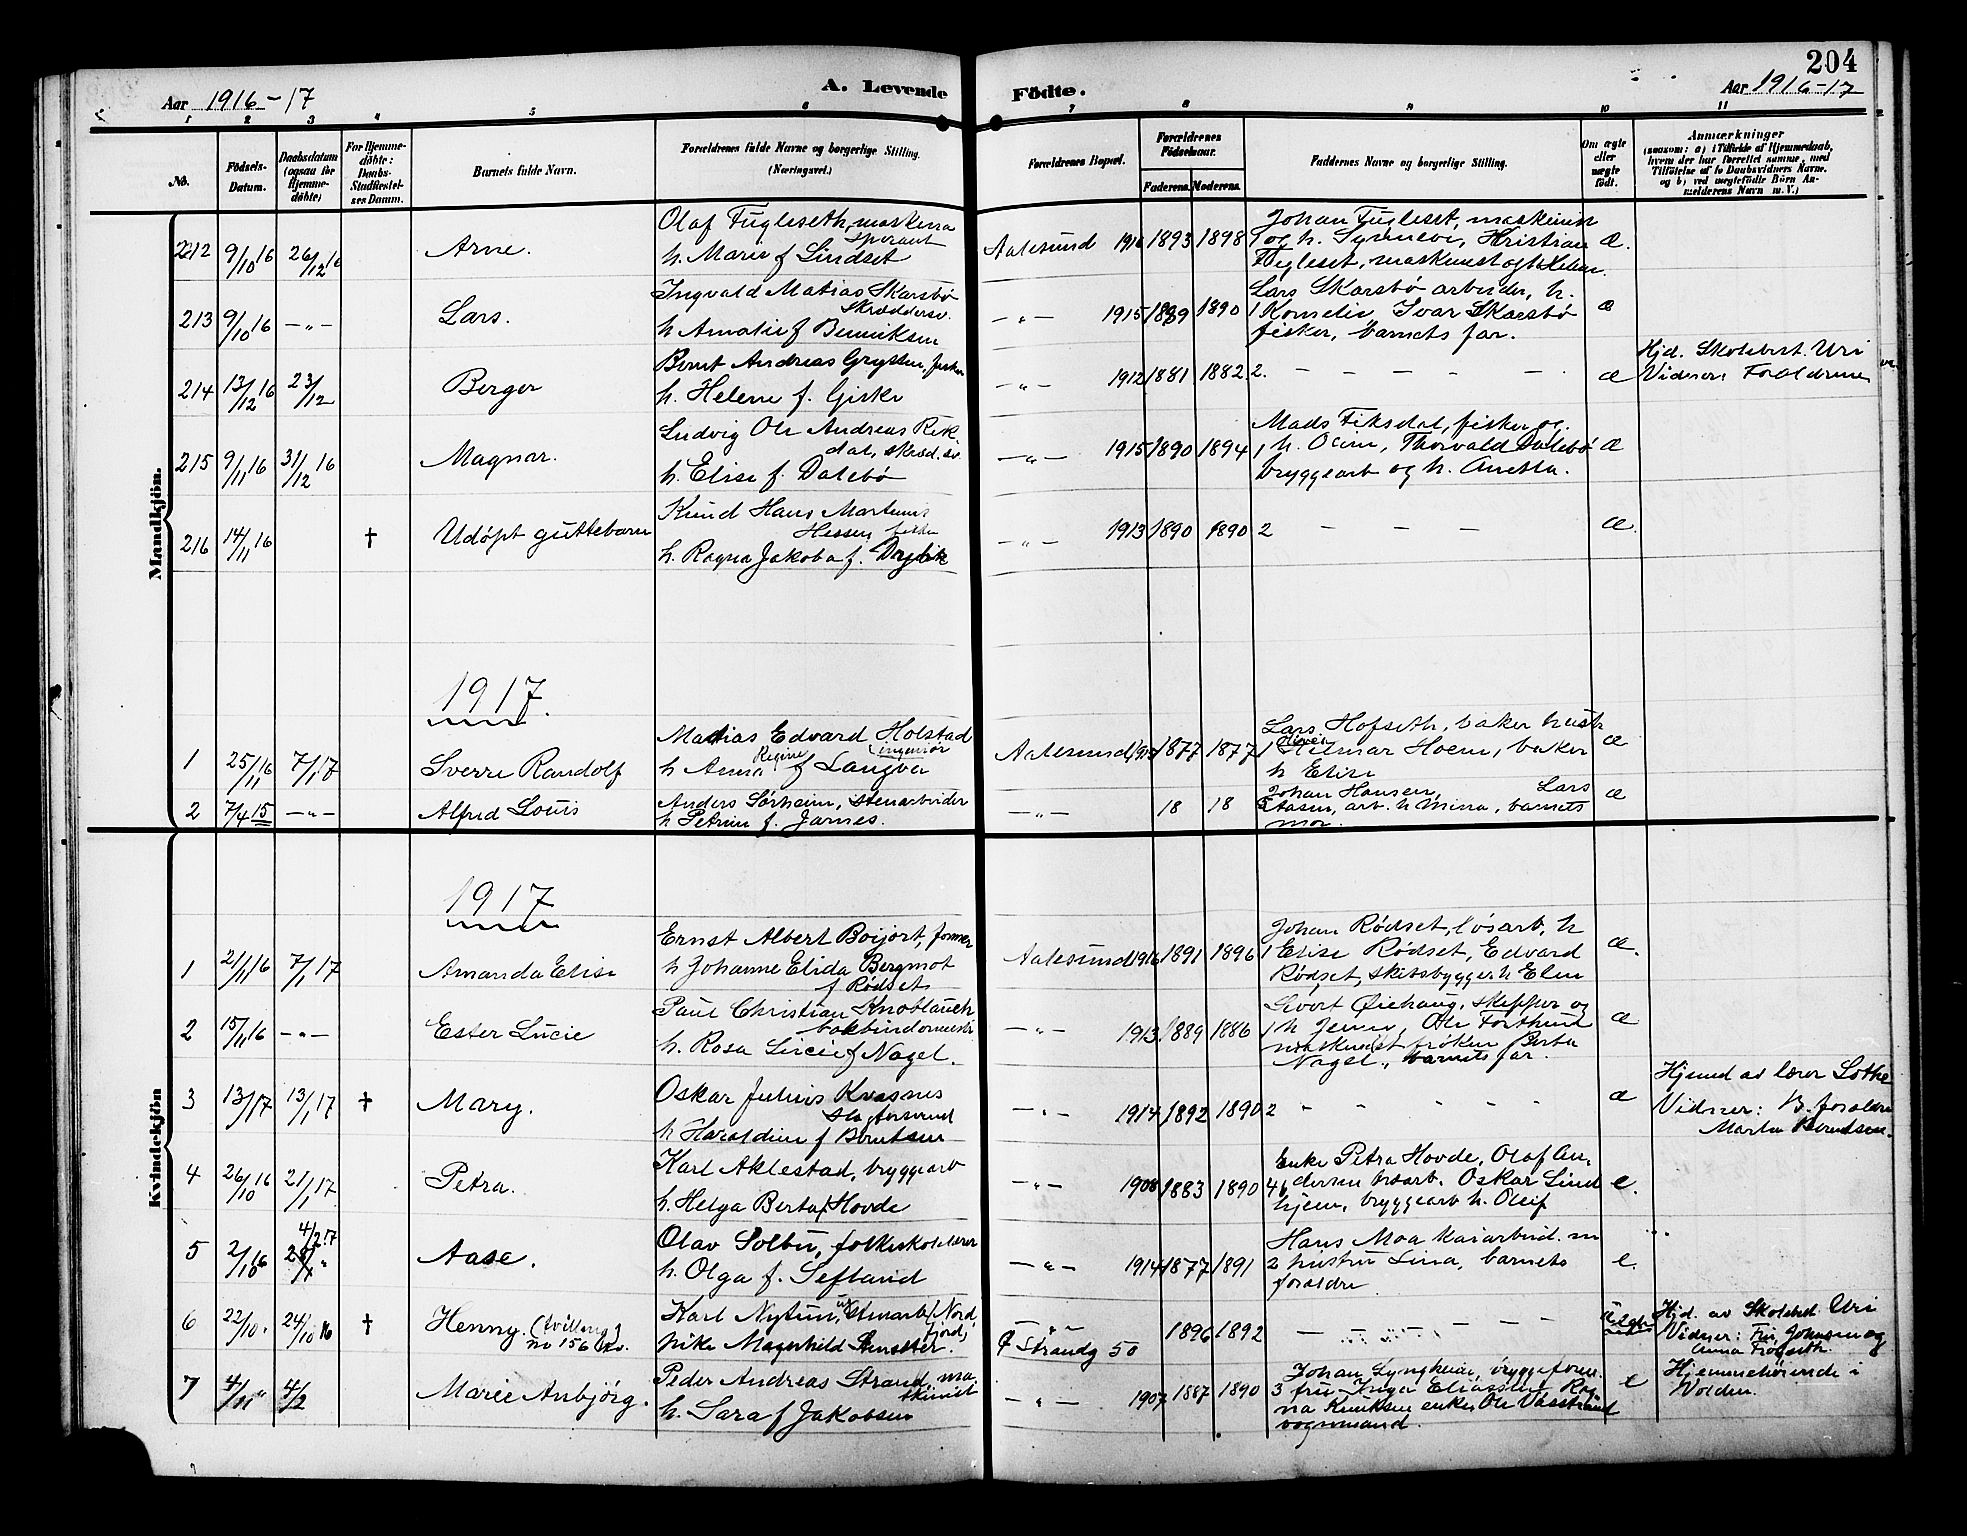 204
Aar 1916-17
A. Levende Födte.
Aar 1916-17
1 2 3 4 5 6 7 8 9 10 11
No.
Födsels-Datum.
Daabsdatum (ogsaa för Hjemme-döbte)
For Hjemme-döbte: Daabs-Stadfæstel-ses Datum.
Barnets fulde Navn.
Forældrenes fulde Navne og borgerlige Stilling. (Næringsvei.)
Forældrenes Bopæl.
Forældrenes Födselsaar.
Faderens. Moderens.
Faddernes Navne og borgerlige Stilling.
Om ægte eller uægte födt.
Anmærkninger
(saasom: a) i Tilfælde af Hjemmedaab,
hvem der har forrettet samme, med
Tilföielse af to Daabsvidners Navne.
og b) ved uægtefödte Börn An-
melderens Navn m. V.)
Mandkjön.
212 9/10 16 26/12 16 Arne.
Olaf Fugleseth, maskinaspirant
h. Marie f Lindset
Aalesund 1916 1893 1898
Johan Fugleset, maskinist
1 og h. Kristian
Fugleset, maskinist og h.
Æ.
213 9/10 16 —„— Lars.
Ingvald Matias Skarsbö
Skræddersv.
h Amalie f Benriksen
—„— 1915 1889 1890
Lars Skarsbö arbeider, h.
1 Kornelie Ivar Skarsbö
fisker, barnets far.
Æ
214 13/12 16 23/12 Berger
Bernt Andreas Grytten, fisker
h. Helene f. Giske
—„— 1912 1881 1882 2. — — — — —
Æ
Hjd. Skolebest. Uri
Vidner: Foreldrene
215 9/11 16 31/12 16 Magnar.
Ludvig Ole Andreas Rekdal, skræd. sv.
h. Elise f. Dalebö
—„— 1915 1890 1894
Mads Fiksdal, fisker og
1 h. Oline, Thorvald Dalebö
bryggearb og h. Anetta.
Æ
216 14/11 16 † Udöpt guttebarn
Knud Hans Martinus
Hessen fisker
h. Ragna Jakoba f. Drybik
—„— 1913 1890 1890 2 — — — Æ.
1917.
1 25/11 16 7/1 17 Sverre Randolf
Matias Edvard Holstad
ingeniör
h Anna Regine f Langva
Aalesund 1877 1877
Lars Hofseth, baker hustr
1 Hilmar Hoem, baker
h Elise
Æ
2 7/4 15 —„— Alfred Louis
Anders Sørheim, stenarbeider
h Petrine f. Jarnes.
—„— 18 18
Johan Hansen, Lars
Aasen, arb. h Minna, barnets
mor.
Æ
Kvindekjön
1917
1 21/11 16 7/1 17 Amanda Elise
Ernst Albert Boijort, former
h Johanne Elida Bergmot
f Rödset
Aalesund 1916 1891 1896
Johan Rödset, lösarb, h
1 Elise Rödset, Edvard
Rödset, skibsbygger h Elen
Æ.
2 15/11 16 —„— Ester Lucie
Paul Christian Knoblauch
bokbindermester
h. Rosa Lucie f Nagel.
—„— 1913 1889 1886
Sivert Øiehaug, skipper og
1 h Jenny, Ole
maskinist fröken Berta
Nagel, barnets far.
Æ
3 13/1 17 13/1 17 † Mary.
Oskar Julius Kvasnes
h Haraldine f Berntsen
—„— 1914 1892 1890 2 „ „ „ „ „ Æ
Hjemd av lærer Lothe
Vidner: B. foreldre
Marta Berntsen.
4 26/10 16 21/1 17 Petra.
Karl Aklestad, bryggearb
h. Helga Berta f Hovde
—„— 1908 1883 1890
Enke Petra Hovde, Olaf An-
4 dersen Oskar Lind
hjem, bryggearb h. Oleif
e.
5 2/10 16 4/2 17 Aase.
Olav Solbu, folkeskolelærer
h. Olga f. Sefland
—„— 1914 1877 1891
Hans Moa kaiarbeid. m
2 hustru Lina, barnets
foreldre
e.
6 22/10 „ 24/10 16 † Henny. (tvilling)
no 156
Karl Nytun, ug stenarb (Nordfjord)
pike Magnhild
—„—
Ø Strandg 50 1896 1892 — — — —
Uegte
Hjd. av Skolebest Uri
Vidner: Fru Johnsen og
Anna
7 4/11 „ 4/2 Marie Anbjörg.
Peder Andreas Strand maskinist
h. Sara f Jakobsen
—„— 1907 1887 1890
Johan Lyngheim, bryggeform.
3 fru Inga Eliassen Rag-
na Henriksen enke, Ole Vasstrand
vognmand.
e
Hjemmehörende i
Volden.